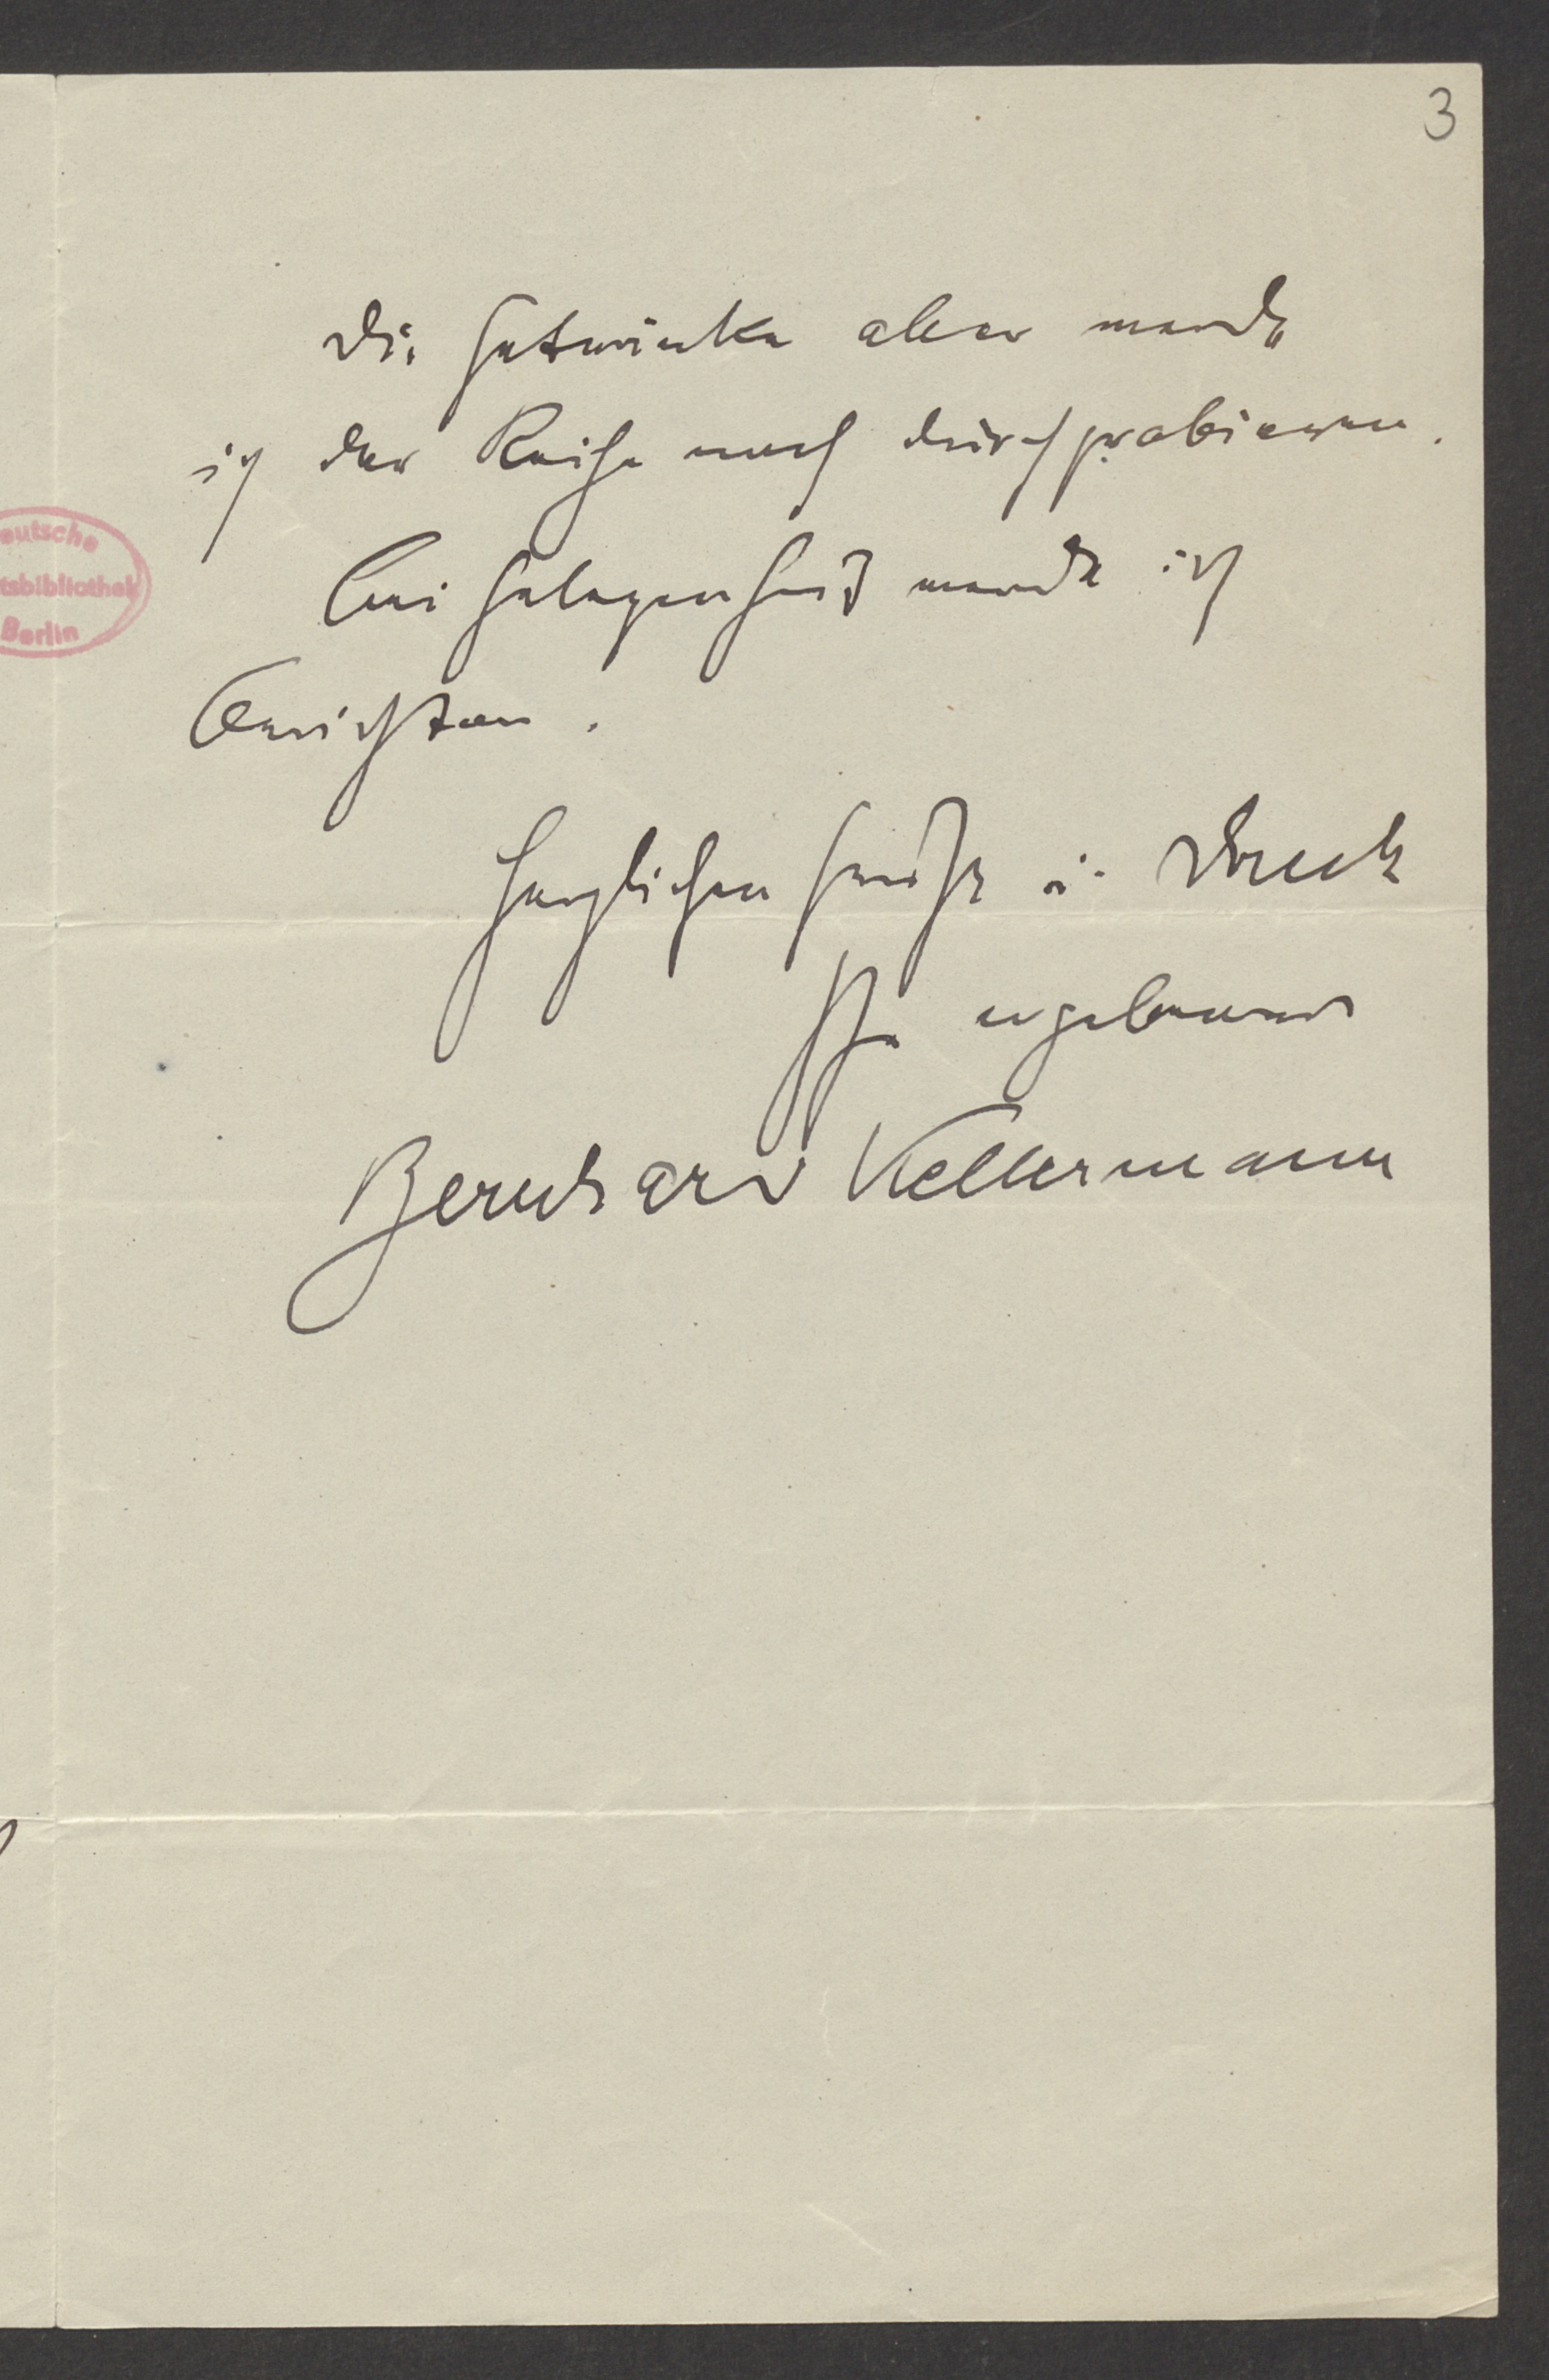 3
Die Getränke aber werde
ich der Reihe nach durchprobieren.
Bei Gelegenheit werde ich
berichten.
Herzlichen Gruß u. Dank
Ihr ergebener
Bernhard Kellermann
eutsche
tsbibliothek
Berlin